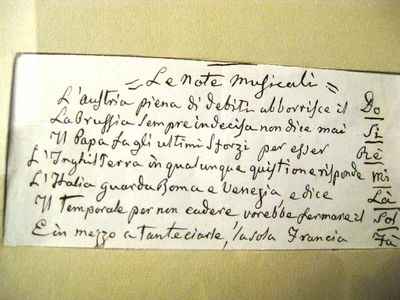 = Le Note Musicali =
L'Austria piena di debiti abborrisce il Do
La Prussia sempre indecisa non dice mai Si
Il Papa fa gli ultimi sforzi per esser Rè
L'Inghilterra in qualunque quistione risponde Mi
L'Italia guarda Roma e Venezia e dice Là
Il Temporale per non cadere vorebbe fermare il Sol
E in mezzo a tante ciarle, la sola Francia Fa